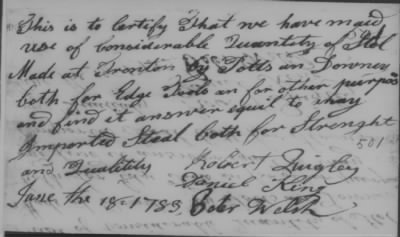 This is to Certify That we have maid
use of Considerable Quantity of Stol
Made at Trenton By Potts an Downey
both for Edge Tools an for other purpos
and find it answer equil to
Imported Steal both for Strenght
501
and Qualitily Robert Quigley
Daniel King
June the 18-1783 Peter Welsh